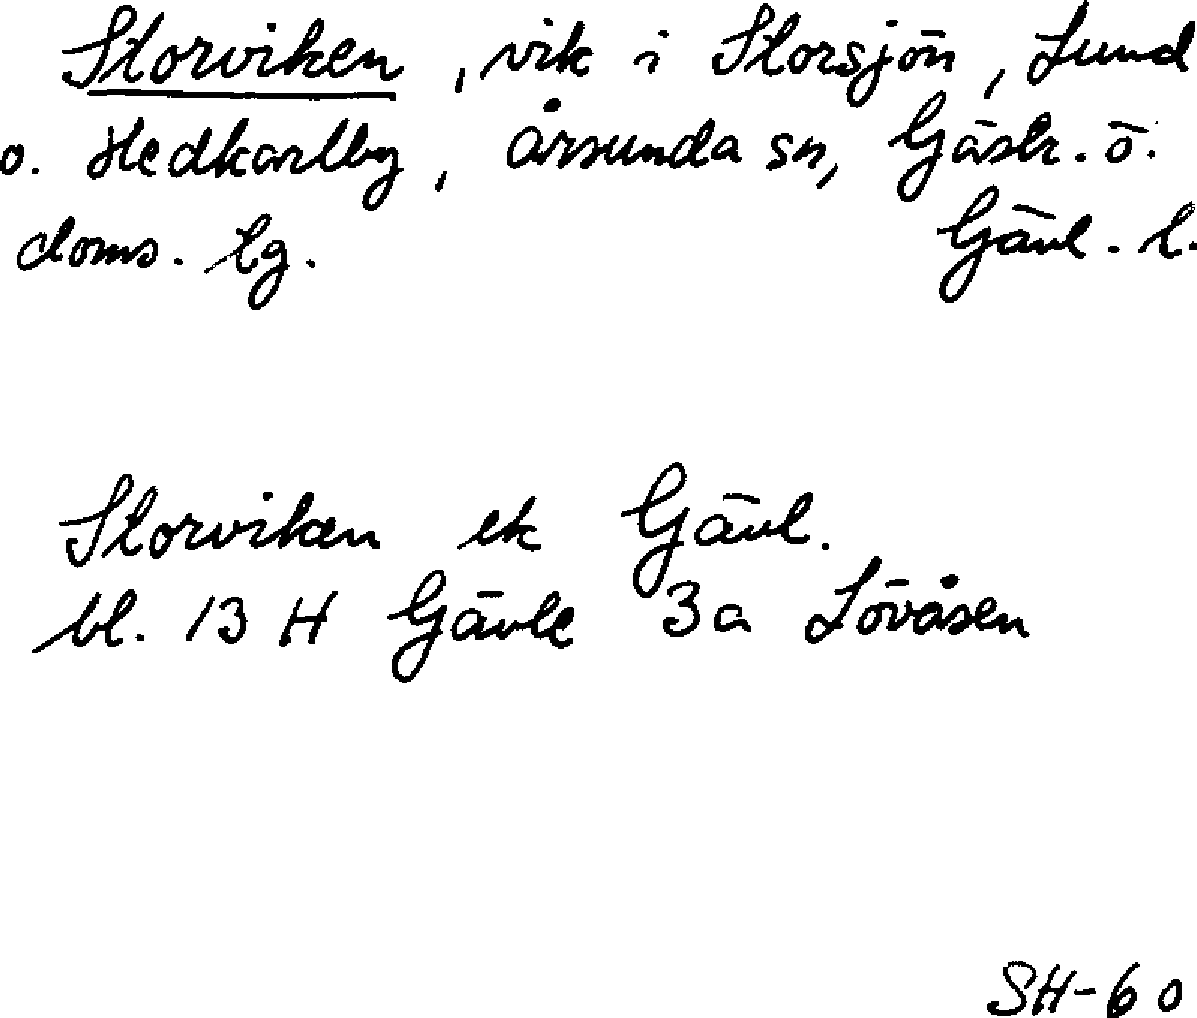 Storviken, vik i Storsjön, Lund
o. Hedkarlby, Årsunda sn, Gästr. ö.
doms. tg. Gävl. l.
Storviken ek Gävl.
bl. 13 H Gävle 3a Lövåsen
SH-60